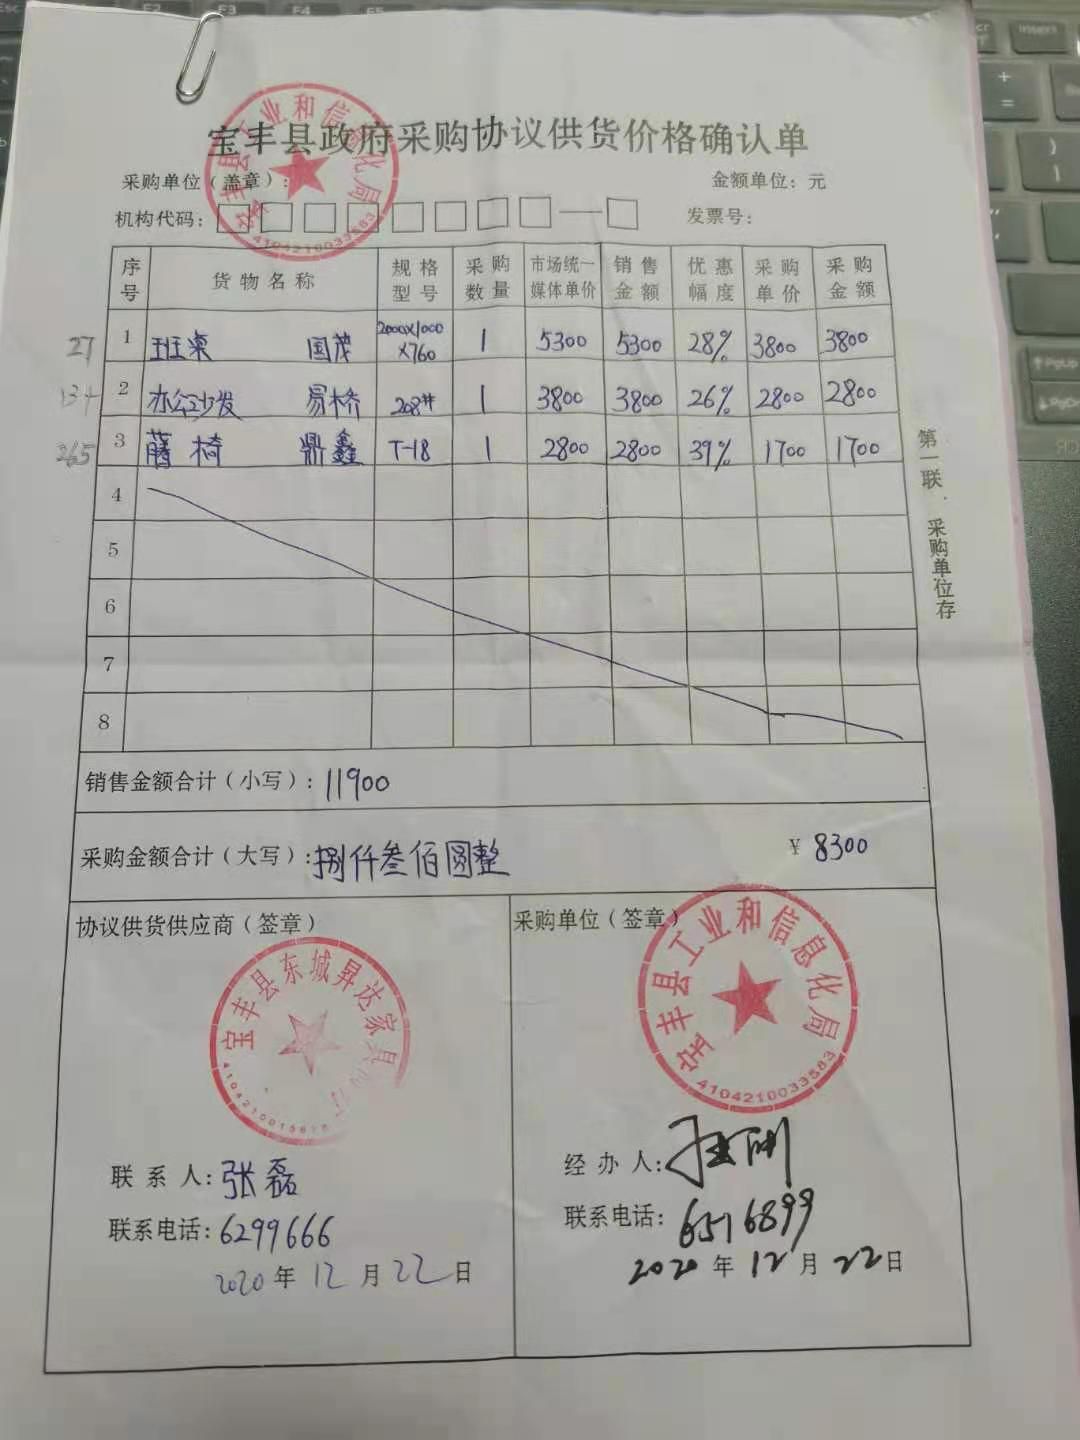 宝丰县政府采购协议供货价格确认单
采购单位（盖章）：
金额单位：元
机构代码：
发票号：
宝丰县工业和信息化局
4104210033583
序号 货物名称 规格型号 采购数量 市场统一媒体单价 销售金额 优惠幅度 采购单价 采购金额
27 1 班桌 国茂 2000X1000X760 1 5300 5300 28% 3800 3800
134 2 办公沙发 易桥 208# 1 3800 3800 26% 2800 2800
265 3 藤椅 鼎鑫 T-18 1 2800 2800 39% 1700 1700
4
5
6
7
8
第一联．采购单位存
销售金额合计（小写）：11900
采购金额合计（大写）：捌仟叁佰圆整 ￥8300
协议供货供应商（签章）
宝丰县东城昇达家具
联系人：张磊
联系电话：6299666
2020年12月22日
采购单位（签章）
宝丰县工业和信息化局
4104210033583
经办人：
联系电话：6516899
2020年12月22日
Esc
F2
F3
F4
F5
Insert
PgUp
PgDn